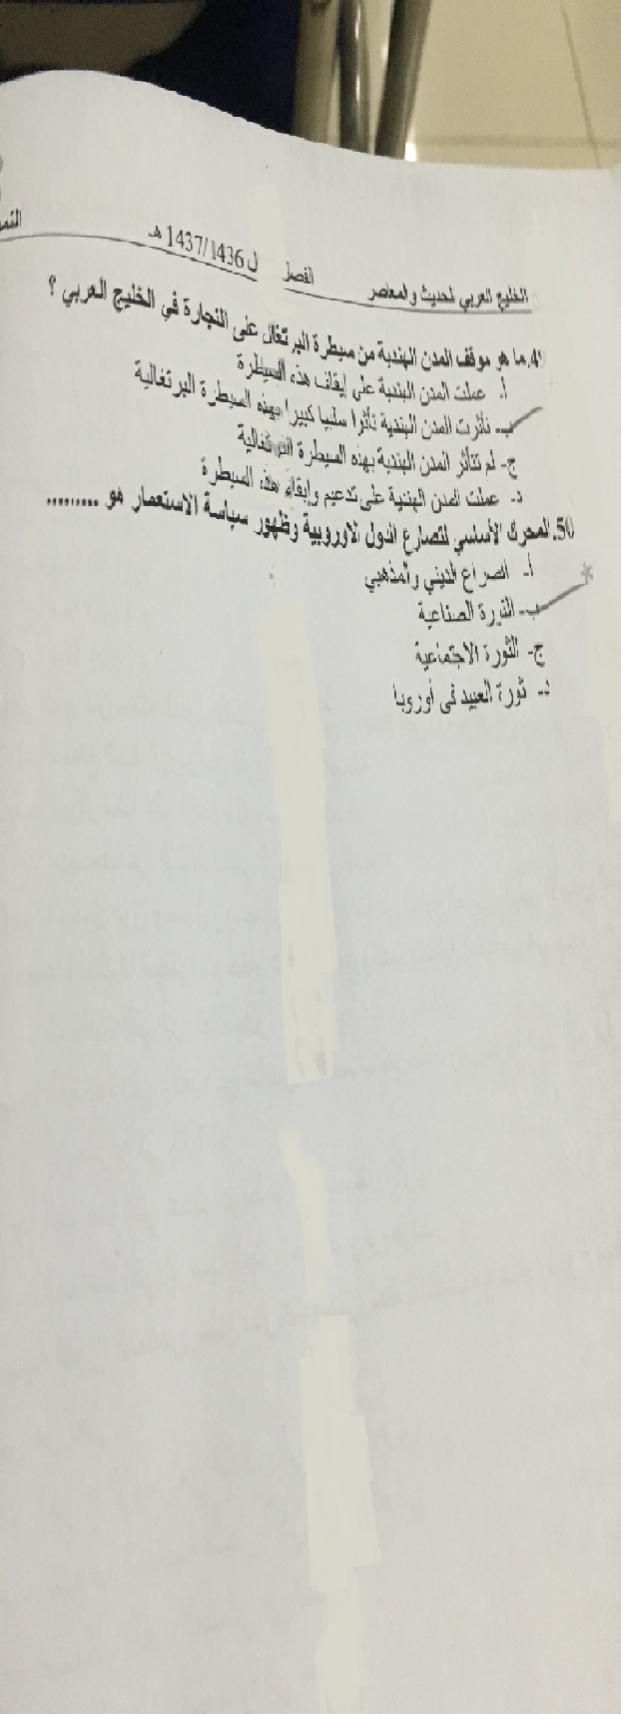 الخليج العربي الحديث والمعاصر الفصل ل 1437/1436 هـ
ما هو موقف المدن الهندية من سيطرة البرتغال على التجارة في الخليج العربي ؟
أ. عملت المدن الهندية على إيقاف هذه السيطرة
ب- تأثرت المدن الهندية تأثرا سلبيا كبيرا بهذه السيطرة البرتغالية
ج- لم تتأثر المدن الهندية بهذه السيطرة البرتغالية
د- عملت المدن الهندية على تدعيم وإبقاء هذه السيطرة
50. المحرك الأساسي لتصارع الدول الاوروبية وظهور سياسة الاستعمار هو .........
أ- الصراع الديني والمذهبي
ب- الثورة الصناعية
ج- الثورة الاجتماعية
د- ثورة العبيد في أوروبا